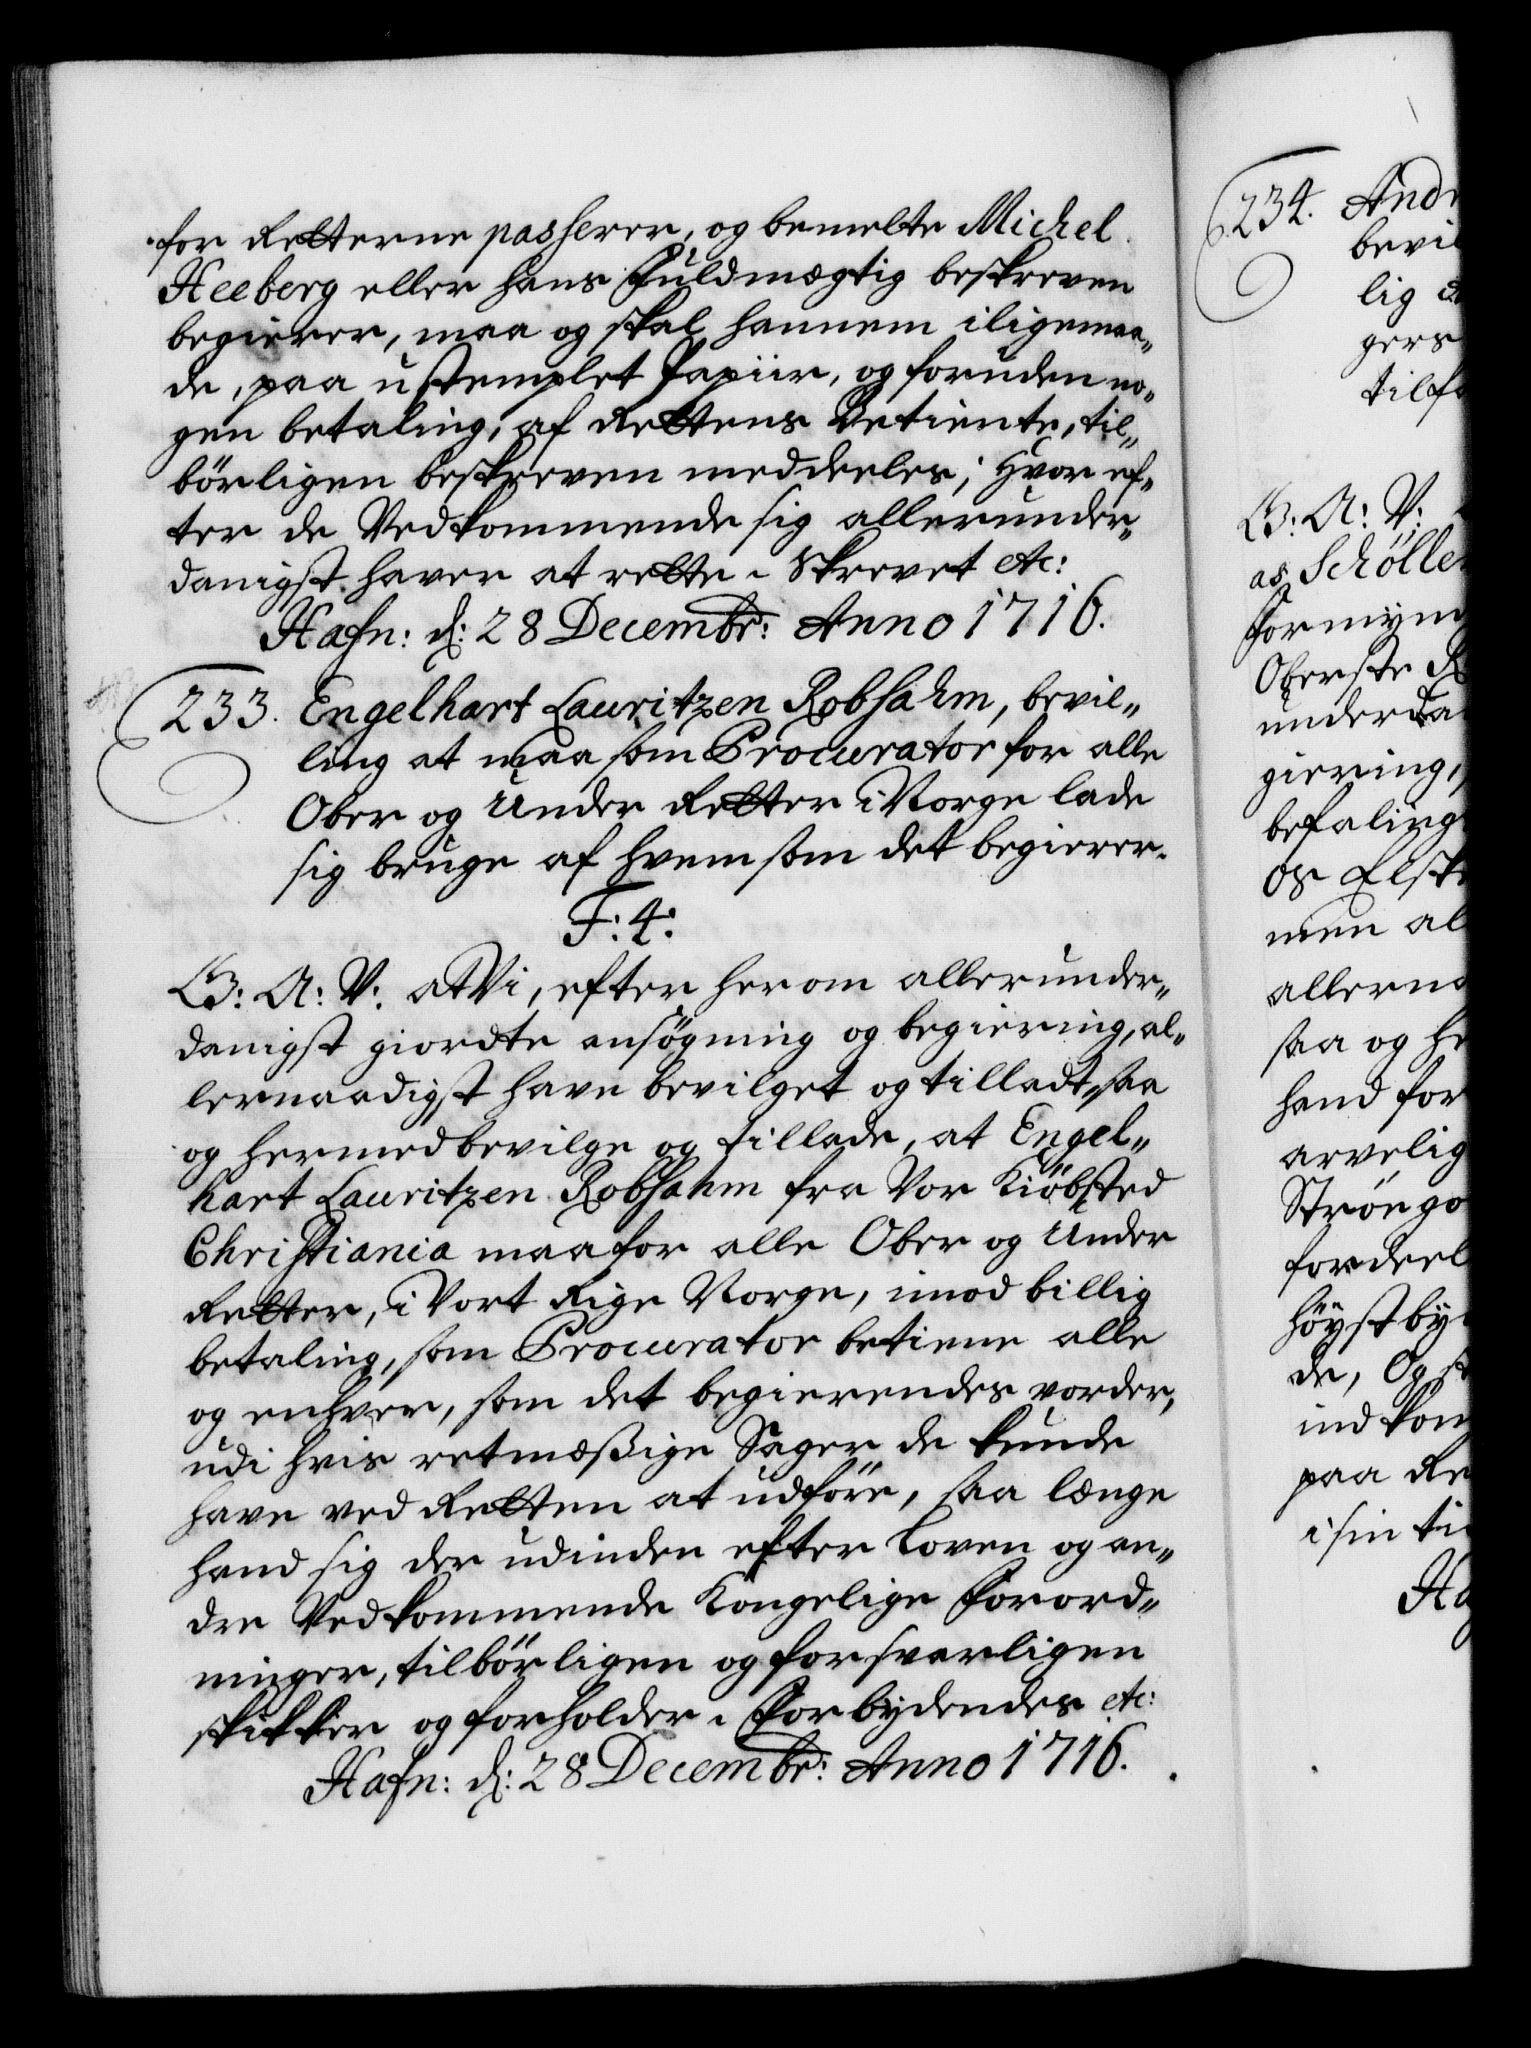 for Retterne passerer, og bemelte Michel
Heeberg eller hans Fuldmægtig beskreven
begierer, maa og skal hannem iligemaa„
de, paa ustemplet Papiir, og foruden no„
gen betaling, af Rettens Betiente, til„
börligen beskreven meddeeles; Hvor ef„
ter de Vedkommende sig allerunder„
danigst haver at rette. Skrevet etc:
Hafn: d: 28 Decembr: Anno 1716.
233. Engelhart Lauritzen Robsahm, bevil„
ling at maa som Procurator for alle
Ober og Under Retter i Norge lade
sig bruge af hvem som det begierer.
F: 4:
G: A: V: at Vi, efter herom allerunder„
danigst giordte ansögning og begiering, al„
lernaadigst have bevilget og tilladt, saa
og hermed bevilge og tillade, at Engel„
hart Lauritzen Robsahm fra Vor Kiöbsted
Christiania maa for alle Ober og Under
Retter, i Vort Rige Norge, imod billig
betaling, som Procurator betiene alle
og enhver, som det begierendes vorder,
udi hvis retmæßige Sager de kunde
have ved Retten at udföre, saa længe
hand sig der udinden efter Loven og an„
dre Vedkommende Kongelige Forord„
ninger, tilbörligen og forsvarligen
skikker og forholder. Forbydendes etc:
Hafn: d: 28 Decembr: Anno 1716.
234. And
bevil
lig
gers
tilfa
G: A: V:
as Schöller
Formyn
Oberste R
underda
giering,
befaling
os Elsk
men al
allerna
saa og he
hand for
arvelig
Ströngo
fordeel
höystby
de, Og s
ind kom
paa Re
i sin ti
Ha